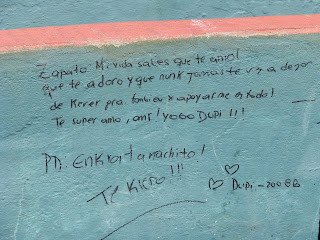 Zapato Mi vida sabes que te amo!
que te adoro y que nunk jamas te vya dejar
de kerer pra tambien x apoyarme en todo!
Te super amo, omf! yooo Dupi!!!
PD. Enkratanachito!
TE KiERO!!!
Dupi - 2008